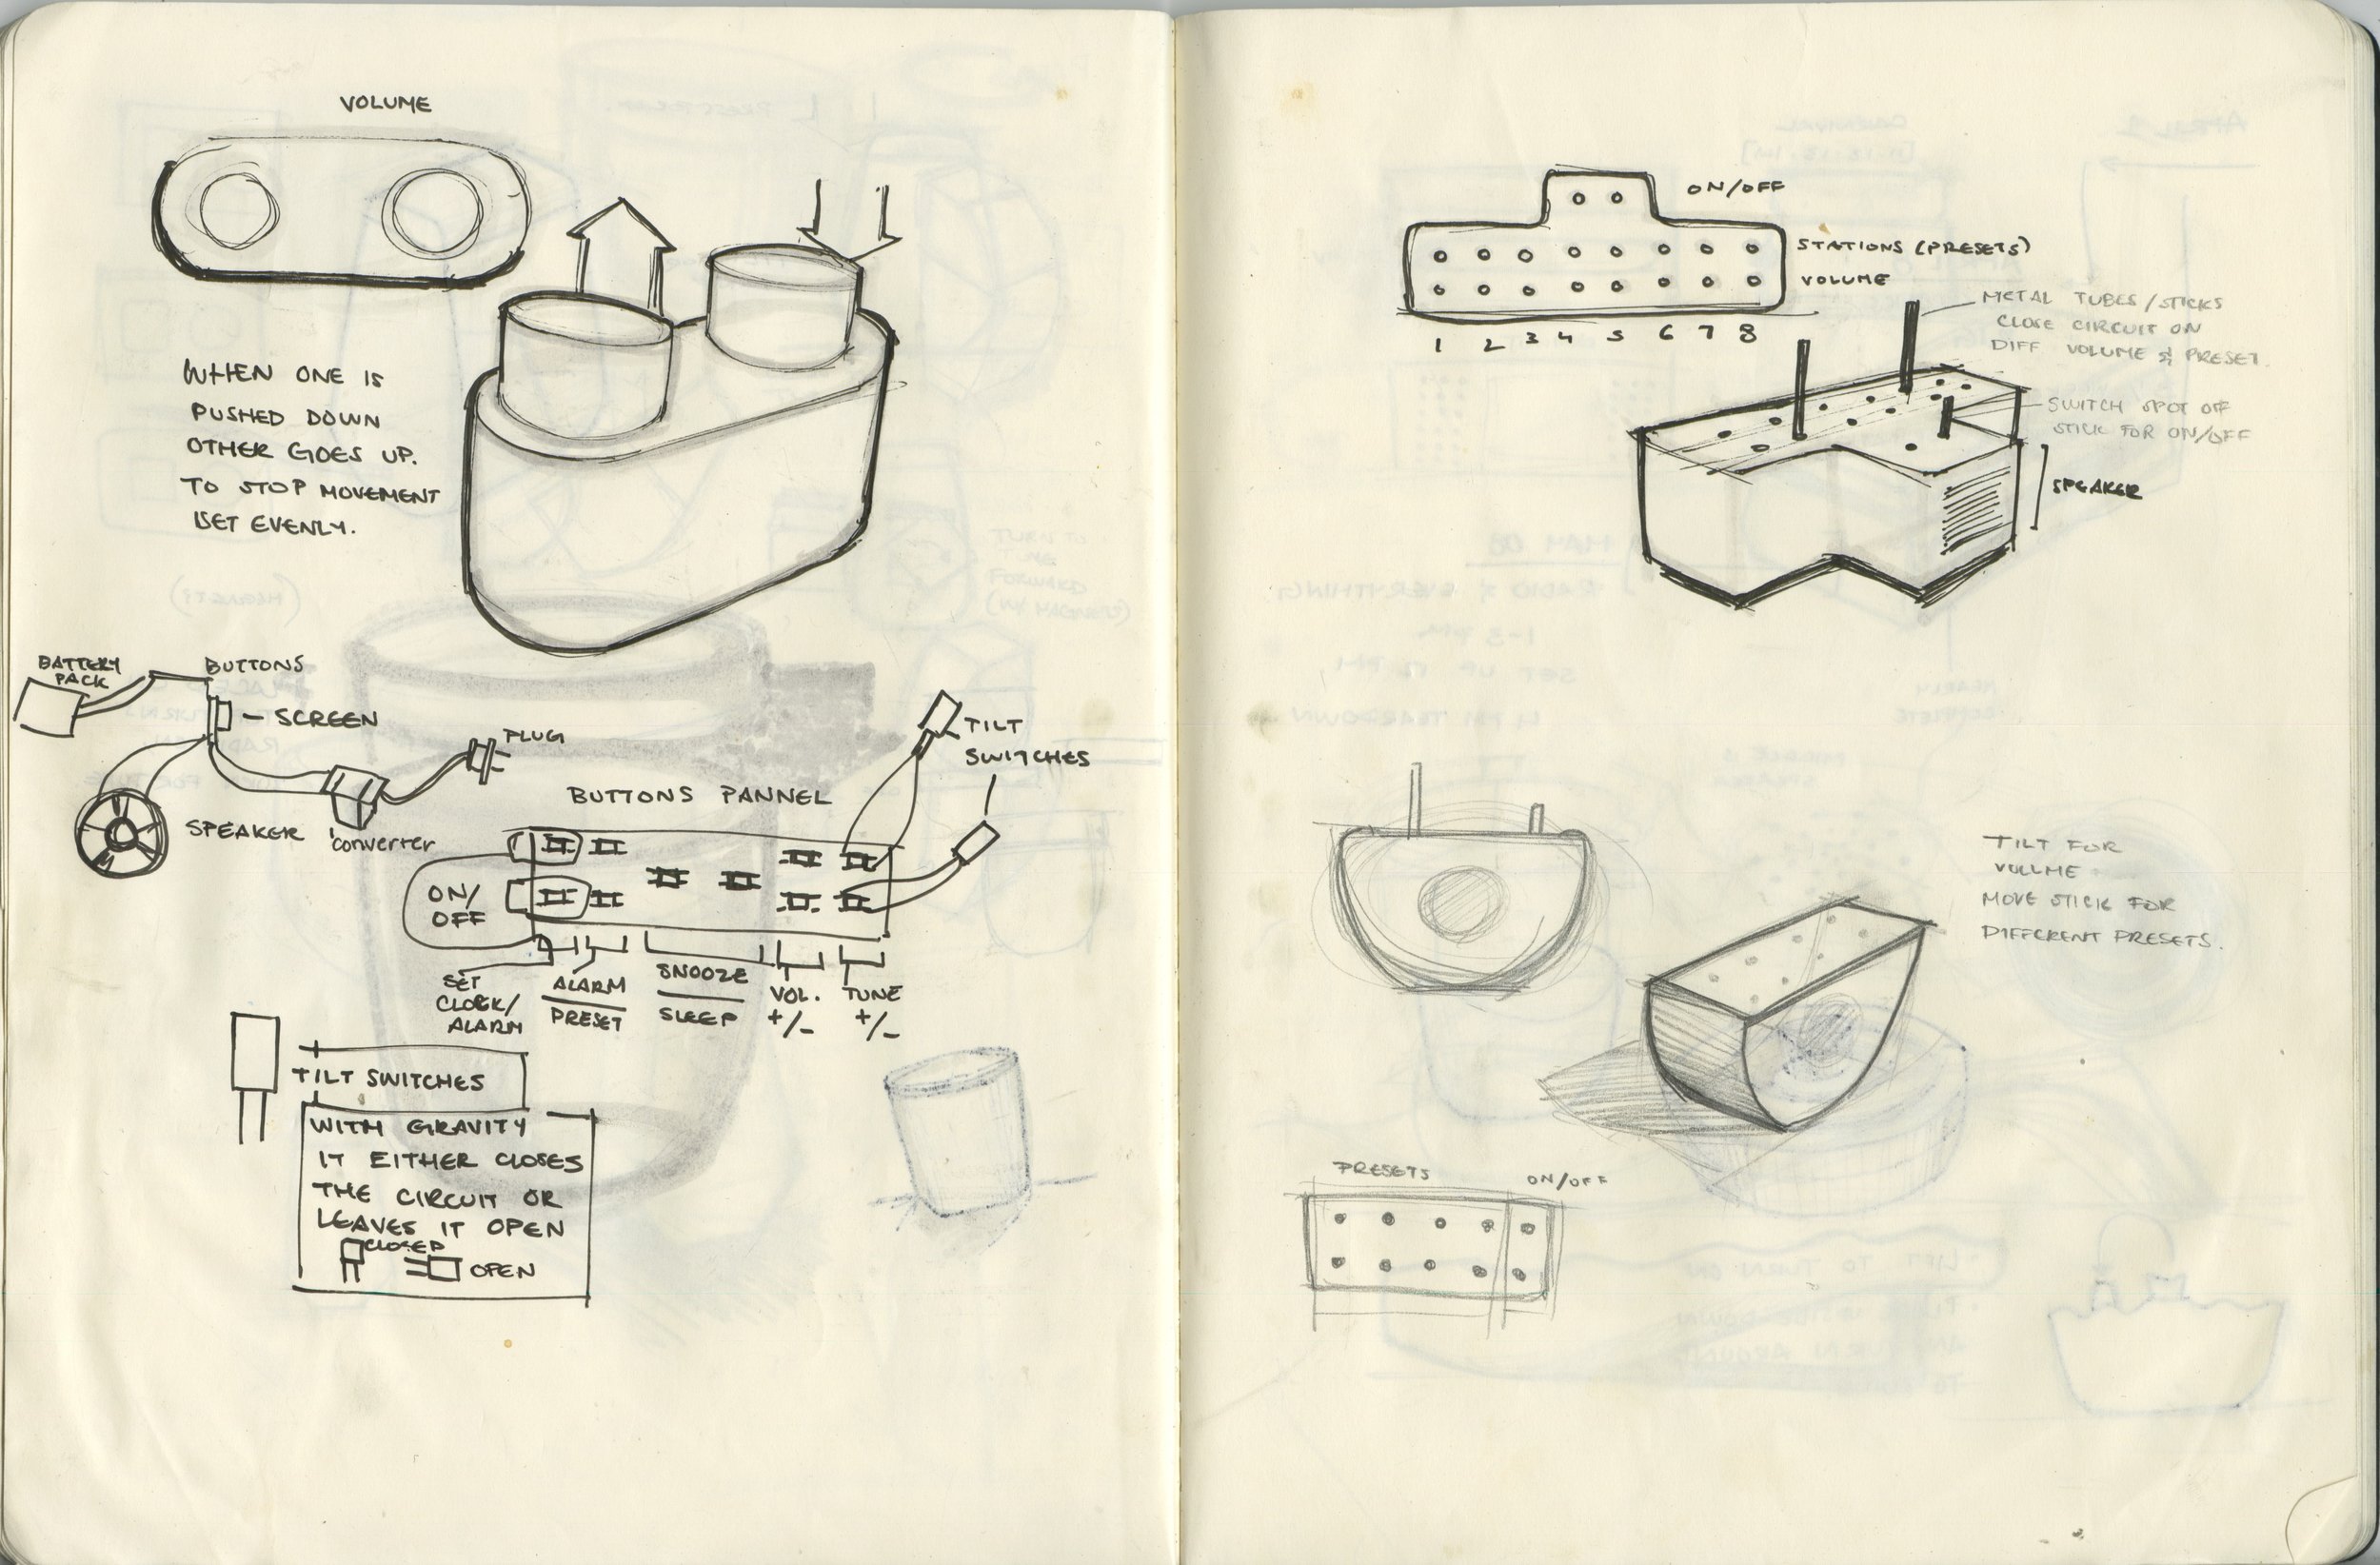 VOLUME
WHEN ONE IS
PUSHED DOWN
OTHER GOES UP.
TO STOP MOVEMENT
SET EVENLY.
BATTERY
PACK
BUTTONS
– SCREEN
PLUG
SPEAKER
converter
TILT
SWITCHES
BUTTONS PANNEL
ON/
OFF
SET
CLOCK/
ALARM
ALARM
PRESET
SNOOZE
SLEEP
VOL.
+/-
TUNE
+/-
TILT SWITCHES
WITH GRAVITY
IT EITHER CLOSES
THE CIRCUIT OR
LEAVES IT OPEN
CLOSED
OPEN
TURN TO
TUNE
FORWARD
(W/ MAGNETS)
ON/OFF
STATIONS (PRESETS)
VOLUME
1 2 3 4 5 6 7 8
METAL TUBES/STICKS
CLOSE CIRCUIT ON
DIFF VOLUME & PRESET.
SWITCH SPOT OF
STICK FOR ON/OFF
SPEAKER
TILT FOR
VOLUME
MOVE STICK FOR
DIFFERENT PRESETS.
PRESETS
ON/OFF